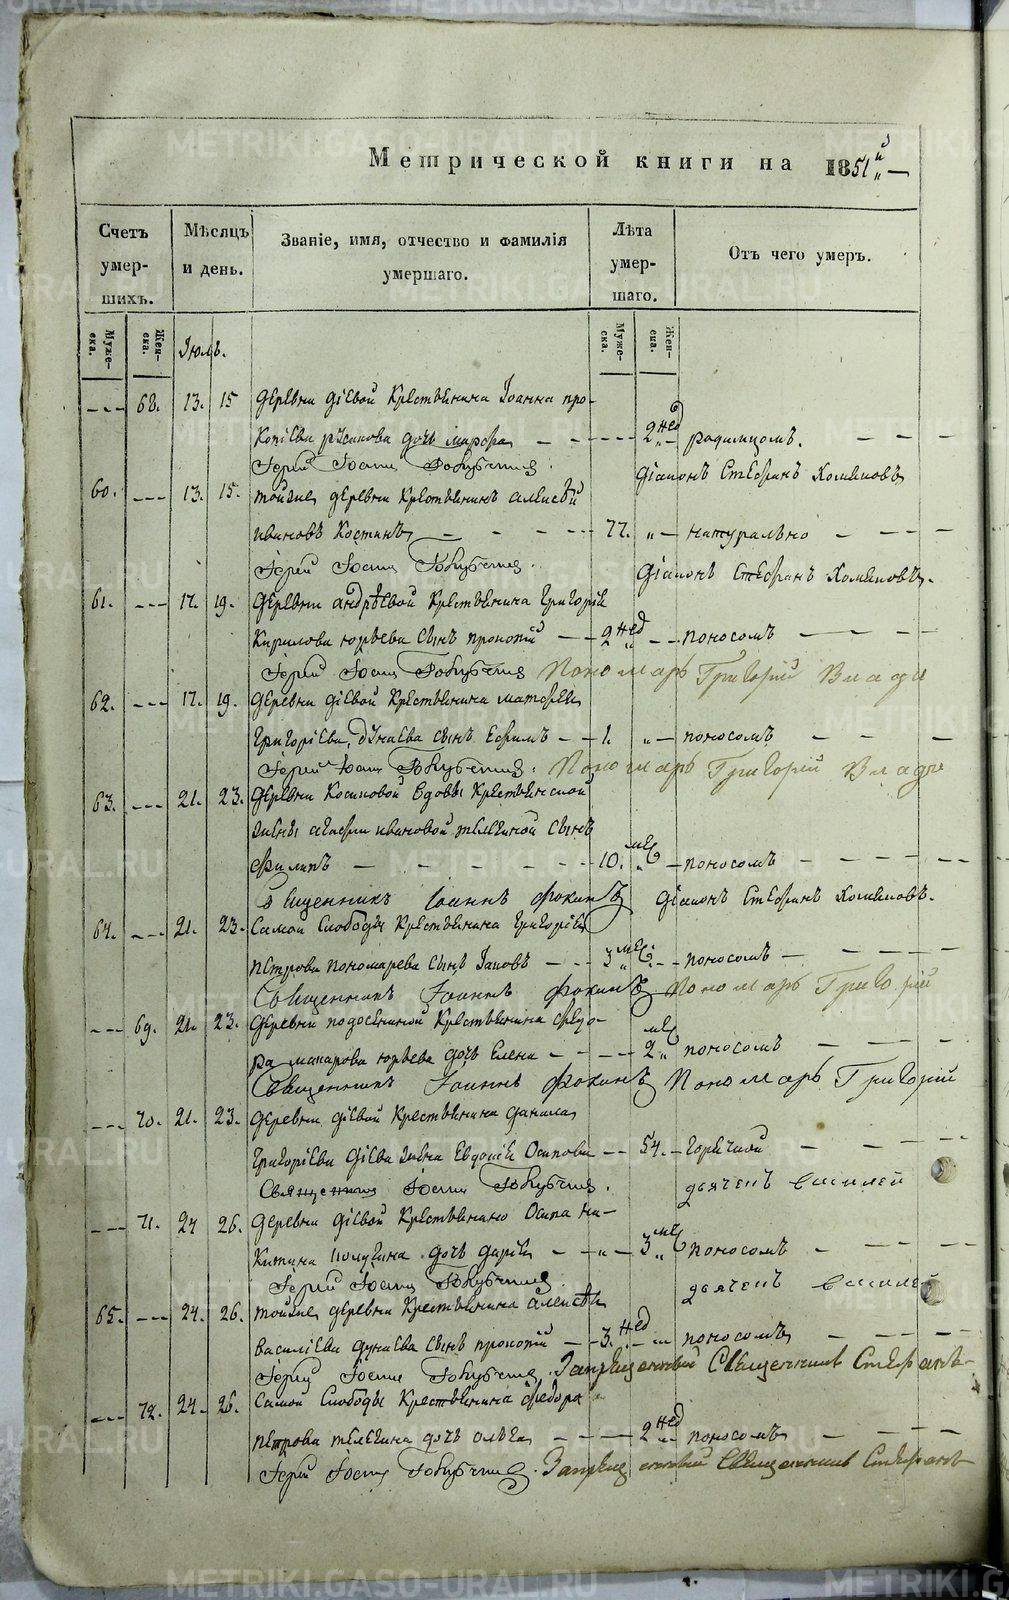 Метрической книги на 1851й
Счетъ умер- шихъ.
Мѣсяцъ и день.
Званіе, имя, отчество и фамилія умершаго.
Лѣта умер- шаго.
Отъ чего умеръ.
Муже- ска.
Жен- ска.
Муже- ска.
Жен- ска.
Июль.
68. 13. 15 деревни Діевой Крестьянина Іоанна Про-
копіева Русакова дочь Марфа 2 нед родимцомъ.
Іерей Іоаннъ діаконъ Стефанъ Хомяковъ
60. 13. 15. тойже деревни Крестьянинъ Алексѣй
Ивановъ Костинъ 77. натурально
Іерей Іоаннъ діаконъ Стефанъ Хомяковъ.
61. 17. 19. деревни Андрѣевой Крестьянина Григорія
Кирилова Юрьева сынъ Прокопій 2 нед поносомъ
Іерей Іоаннъ Пономарь Григорій Влади
62. 17. 19. деревни Діевой Крестьянина Матфея
Григоріева Дунаева сынъ Ефимъ 1. поносомъ
Іерей Іоаннъ Пономарь Григорій Влади
63. 21. 23. деревни Косиковой вдовы Крестьянской
жены Агафьи Ивановой Телегиной сынъ
Филипъ 10. мес поносомъ
Священникъ Іоаннъ Фокинъ діаконъ Стефанъ Хомяковъ.
64. 21. 23. Самой Слободы Крестьянина Григорія
Петрова Пономарева сынъ Іаковъ 3 мес. поносомъ
Священникъ Іоаннъ Фокинъ Пономарь Григорій
69. 21. 23. деревни Крестьянина Федо-
ра Макарова Юрьева дочь Елена 2 мес поносомъ
Священникъ Іоаннъ Фокинъ Пономарь Григорій
70. 21. 23. деревни Діевой Крестьянина Данила
Григоріева Діева жена Евдокія Осипова 54. горячкой
Священникъ Іоаннъ дьячекъ Василей
71. 24 26. деревни Діевой Крестьянина Осипа Ни-
китина дочь Дарія 3 мес поносомъ
Іерей Іоаннъ дьячекъ Василей
65. 24. 26. тойже деревни Крестьянина Алексѣя
Василіева Дунаева сынъ Прокопій 3. нед поносомъ
Іерей Іоаннъ Запрещенный Священникъ Стефанъ
72. 24. 26. Самой Слободы Крестьянина Федора
Петрова Телегина дочь Ольга 2 нед поносомъ
Іерей Іоаннъ Запрещенный Священникъ Стефанъ
METRIKI.GASO-URAL.RU